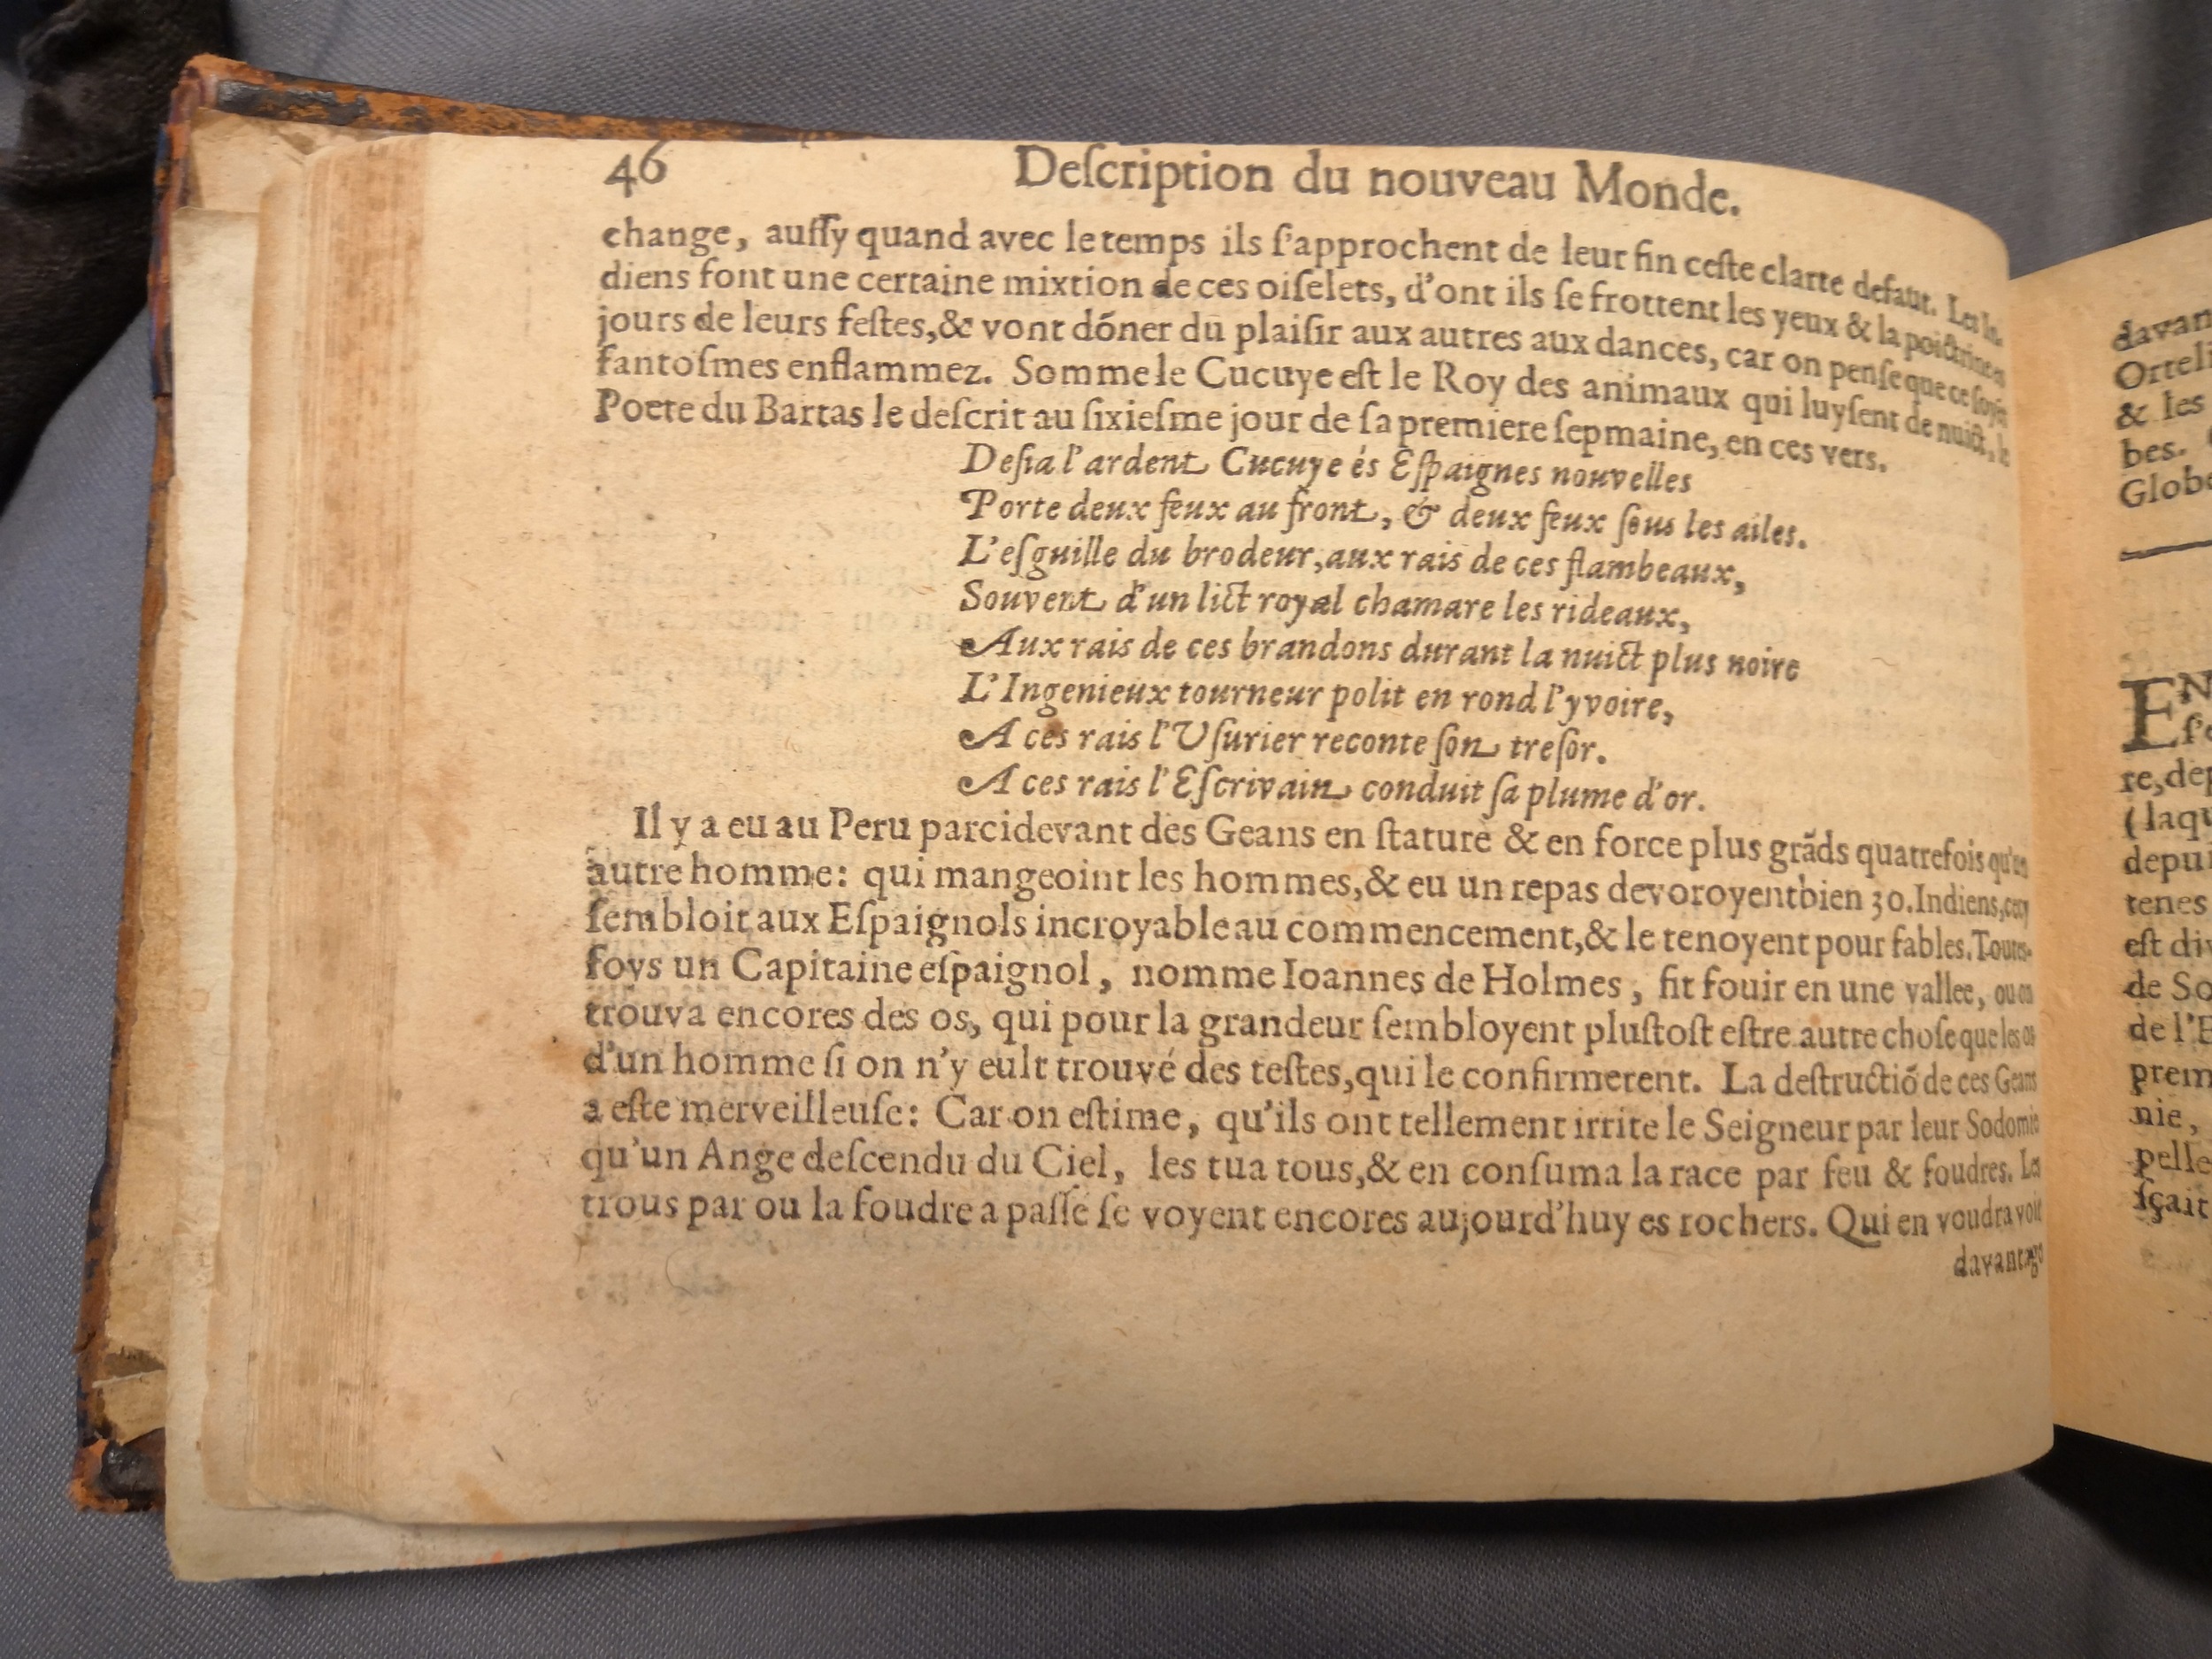 46 Deſcription du nouveau Monde.
change, auſſy quand avec le temps ils ſ'approchent de leur fin ceſte clarte defaut. Les In-
diens font une certaine mixtion de ces oiſelets, d'ont ils ſe frottent les yeux & la poictrine es
jours de leurs feſtes, & vont dóner du plaiſir aux autres aux dances, car on penſe que ce ſoyẽt
fantoſmes enflammez. Somme le Cucuye eſt le Roy des animaux qui luyſent de nuict, le
Poete du Bartas le deſcrit au ſixieſme jour de ſa premiere ſepmaine, en ces vers.
Deſia l'ardent Cucuye és Eſpaignes nouvelles
Porte deux feux au front, & deux feux ſous les ailes.
L'eſguille du brodeur, aux rais de ces flambeaux,
Souvent d'un lict royal chamare les rideaux,
Aux rais de ces brandons durant la nuict plus noire
L'Ingenieux tourneur polit en rond l'yvoire,
A ces rais l'Uſurier reconte ſon treſor.
A ces rais l'Eſcrivain conduit ſa plume d'or.
Il y a eu au Peru parcidevant des Geans en ſtature & en force plus grãds quatrefois qu'un
autre homme: qui mangeoint les hommes, & eu un repas devoroyent bien 30. Indiens, cecy
ſembloit aux Eſpaignols incroyable au commencement, & le tenoyent pour fables. Toutes-
foys un Capitaine eſpaignol, nomme Ioannes de Holmes, fit fouir en une vallee, ou on
trouva encores des os, qui pour la grandeur ſembloyent pluſtoſt eſtre autre choſe que les os
d'un homme ſi on n'y eult trouvé des teſtes, qui le confirmerent. La deſtructió de ces Geans
a eſte merveilleuſe: Car on eſtime, qu'ils ont tellement irrite le Seigneur par leur Sodomie
qu'un Ange deſcendu du Ciel, les tua tous, & en conſuma la race par feu & foudres. Les
trous par ou la foudre a paſſé ſe voyent encores aujourd'huy es rochers. Qui en voudra voir
davantage
davan
Orteli
& les
bes.
Globe
EN
re, dep
(laqu
depui
tenes
eſt di
de So
de l'E
prem
nie,
pelle
ſçait